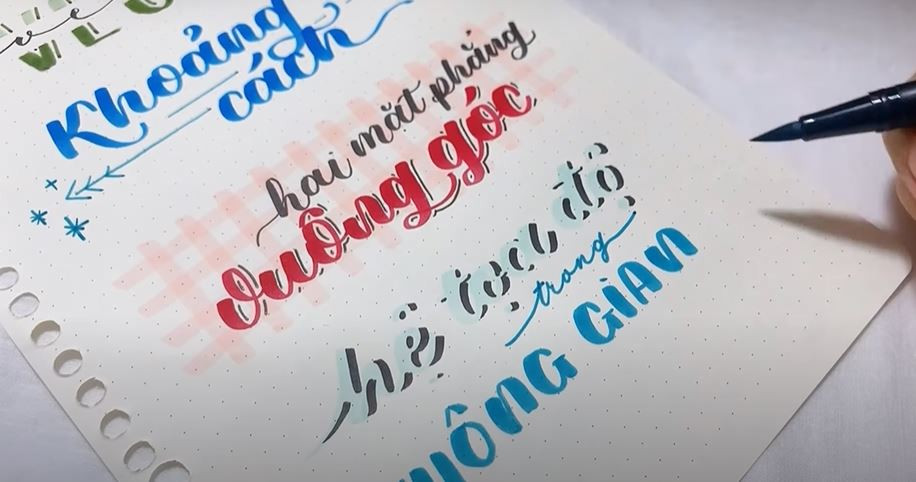 Khoảng
cách
hai mặt phẳng
vuông góc
hệ tọa độ
trong
HÔNG GIAN